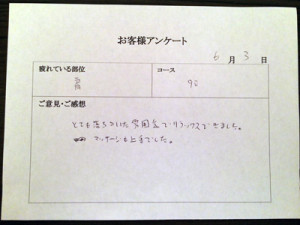 お客様アンケート
6月3日
疲れている部位 コース
肩 90
ご意見・ご感想
とても落ちついた雰囲気でリラックスできました。
マッサージも上手でした。